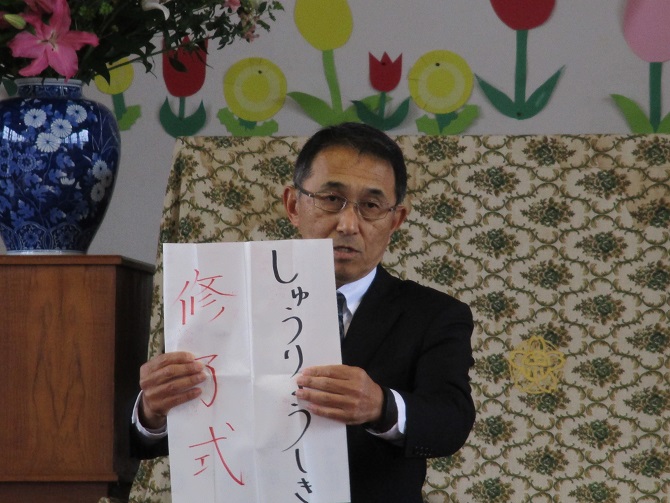 しゅうりょうしき
修了式